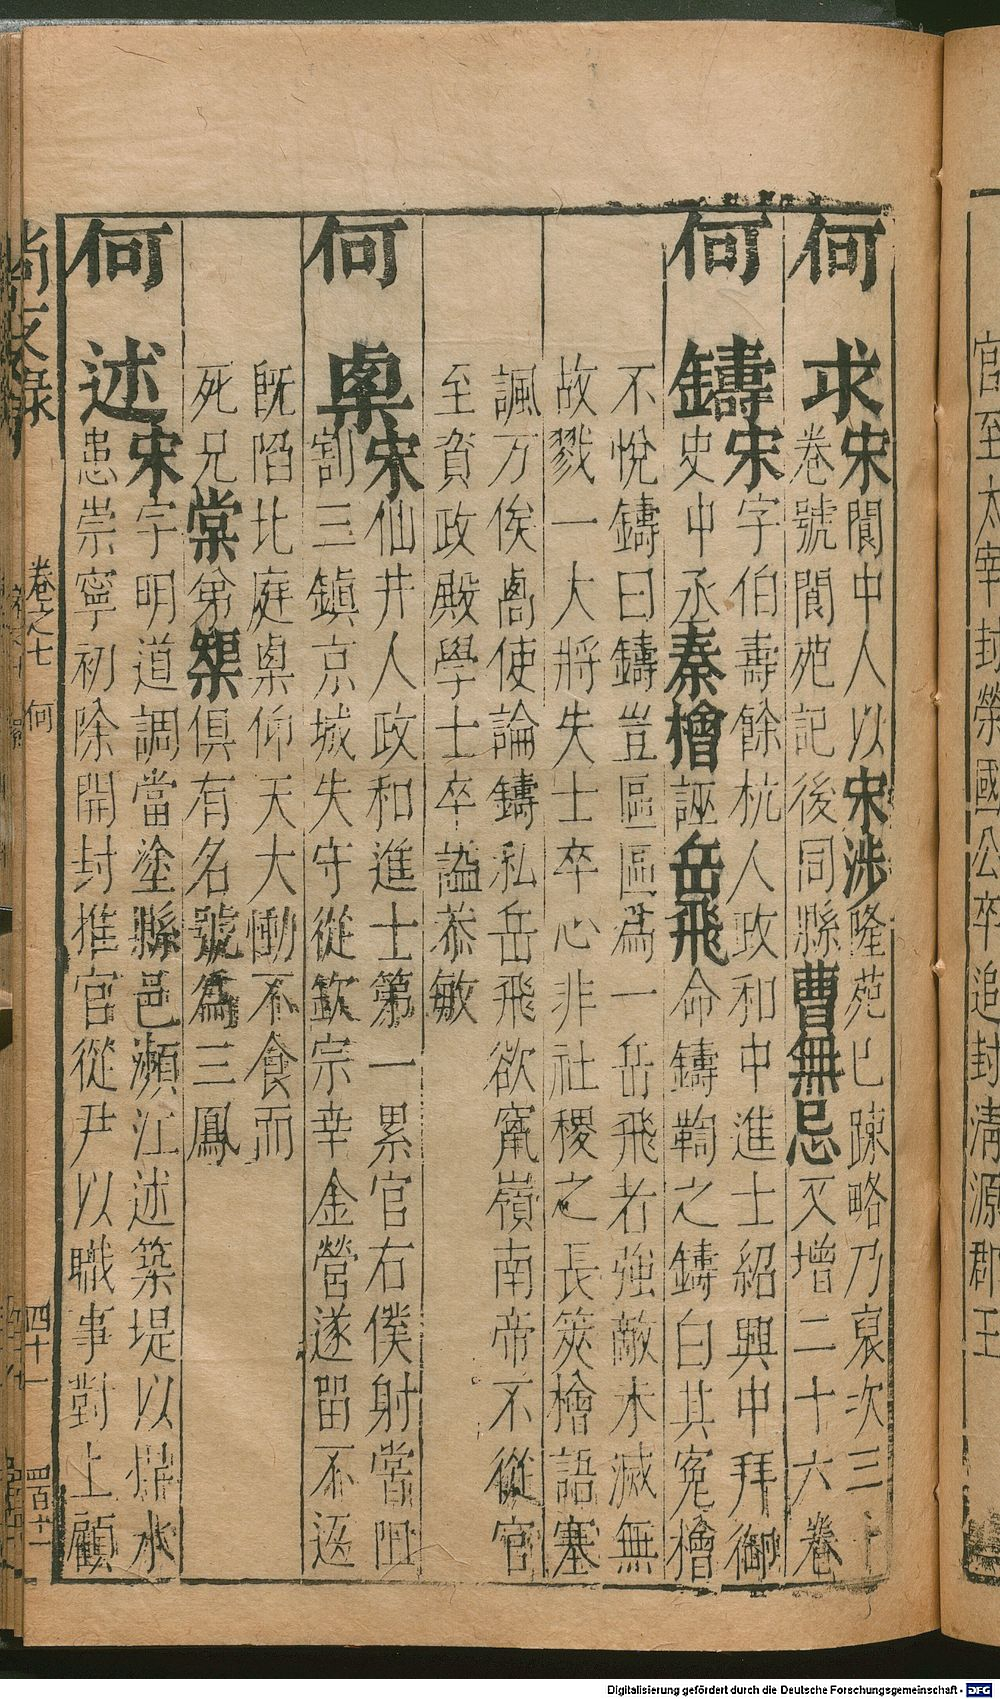 官至太宰封榮國公卒追封清源郡王
何求宋閬中人以宋涉隆苑已踈略乃裒次三十
卷號閬苑記後同縣曹無忌又增二十六卷
何鑄宋字伯壽餘杭人政和中進士紹興中拜御
史中丞秦檜誣岳飛命鑄鞫之鑄白其冤檜
不悅鑄曰鑄豈區區為一岳飛者強敵未滅無
故戮一大將失士卒心非社稷之長筴檜語塞
諷万俟卨使論鑄私岳飛欲竄嶺南帝不從官
至資政殿學士卒謚恭敏
何㮚宋仙井人政和進士第一累官右僕射嘗阻
割三鎮京城失守從欽宗幸金營遂留不返
旣陷北庭㮚仰天大慟不食而
死兄棠弟榘俱有名號為三鳳
何述宋字明道調當塗縣邑瀕江述築堤以捍水
患崇寧初除開封推官從尹以職事對上顧
尚友錄 卷之七 何 四十一 四百十一
Digitalisierung gefördert durch die Deutsche Forschungsgemeinschaft - DFG